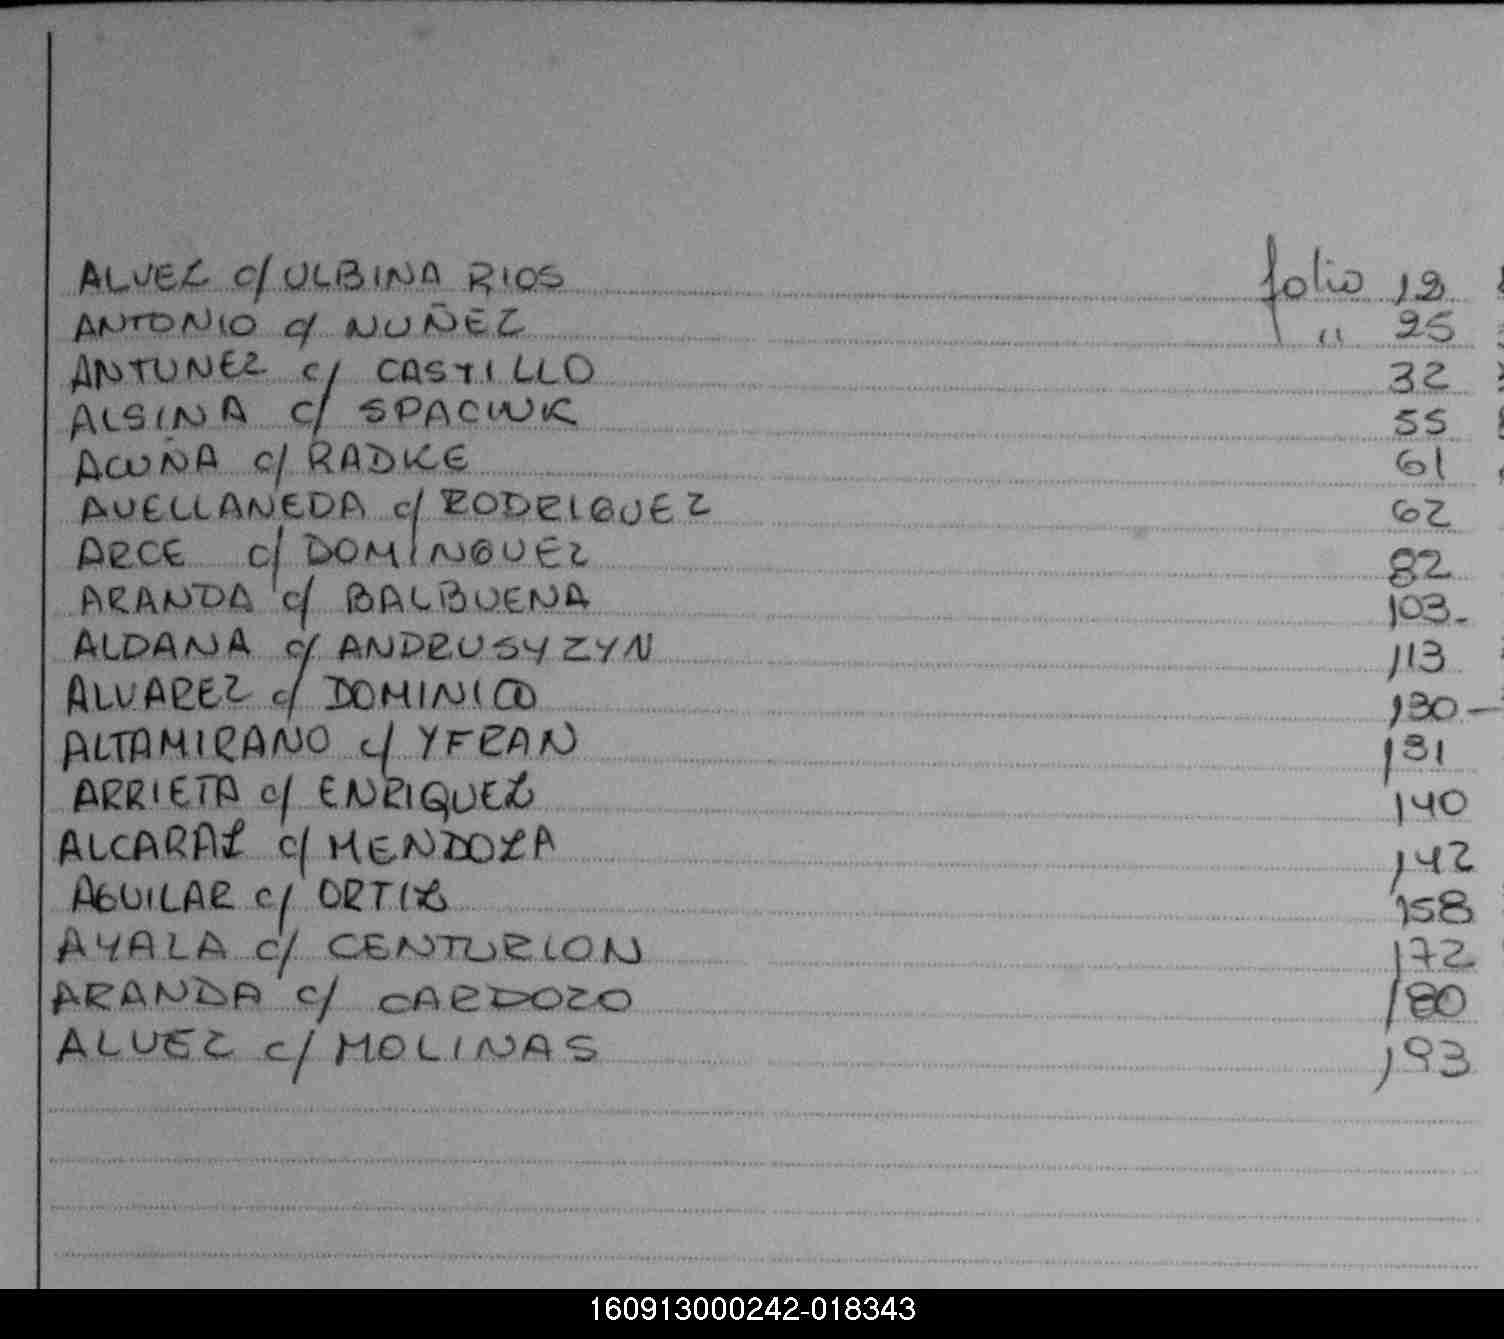 ALVEZ c/ ULBINA RIOS folio 12
ANTONIO c/ NUÑEZ " 25
ANTUNEZ c/ CASTILLO 32
ALSINA c/ SPACIUK 55
ACUÑA c/ RADKE 61
AVELLANEDA c/ RODRIGUEZ 62
ARCE c/ DOMINGUEZ 82
ARANDA c/ BALBUENA 103.
ALDANA c/ ANDRUSYZYN 113
ALVAREZ c/ DOMINICO 130 -
ALTAMIRANO c/ YFRAN 131
ARRIETA c/ ENRIQUEZ 140
ALCARAZ c/ MENDOZA 142
AGUILAR c/ ORTIZ 158
AYALA c/ CENTURION 172
ARANDA c/ CARDOZO 180
ALVEZ c/ MOLINAS 193
160913000242-018343